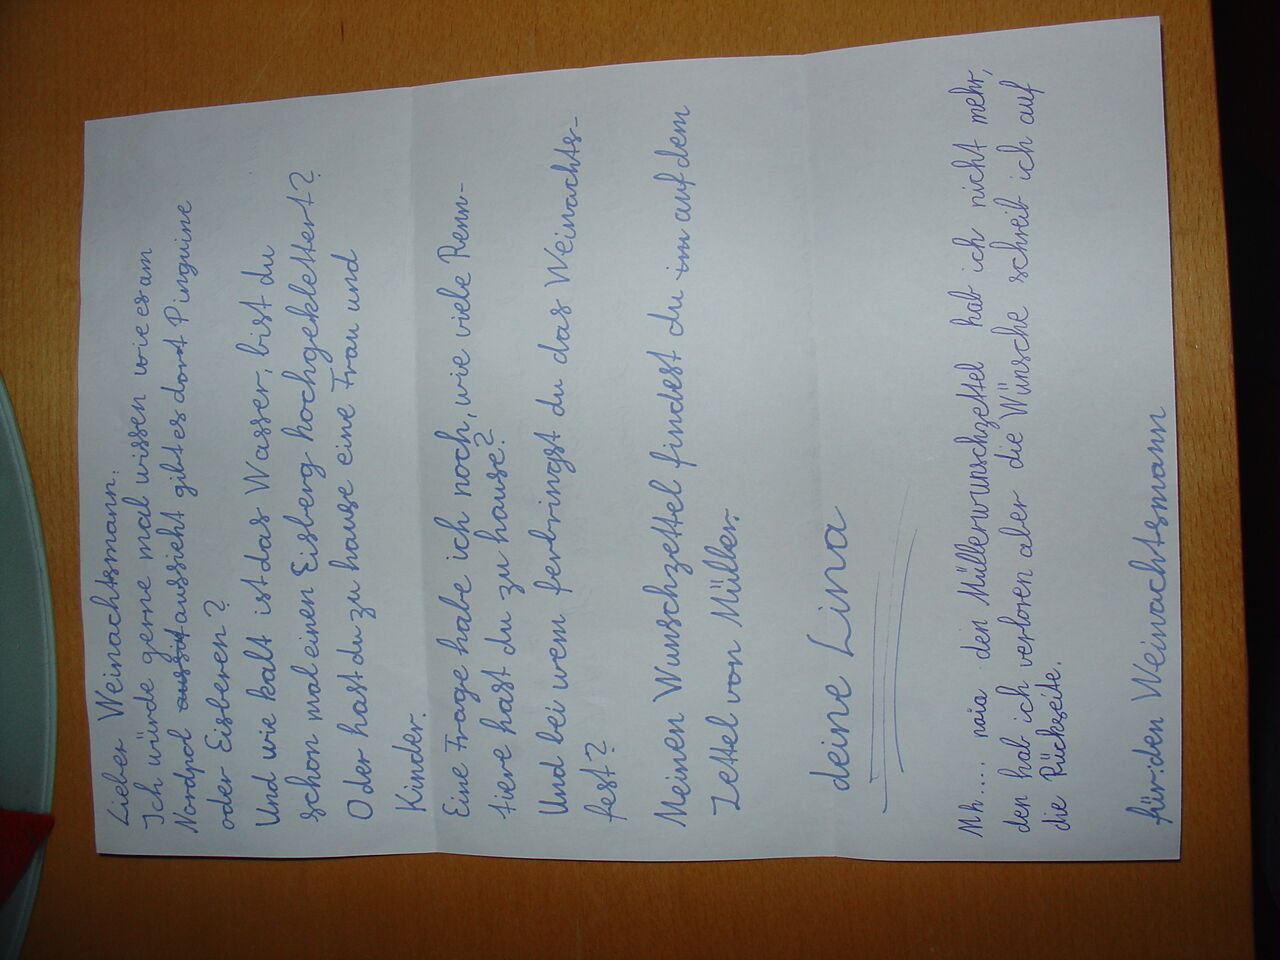 Lieber Weinachtsmann.
Ich würde gerne mal wissen wie es am
Nordpol aussit aussieht gibt es dort Pinguine
oder Eisberen?
Und wie kalt ist das Wasser, bist du
schon mal einen Eisberg hochgeklettert?
Oder hast du zu hause eine Frau und
Kinder.
Eine Frage habe ich noch, wie viele Renn-
tiere hast du zu hause?
Und bei wem ferbringst du das Weinachts-
fest?
Meinen Wunschzettel findest du im auf dem
Zettel von Müller.
deine Lina
Mh.... naja den Müllerwunschzettel hab ich nicht mehr,
den hab ich verloren aber die Wünsche schreib ich auf
die Rückseite.
für:den Weinachtsmann